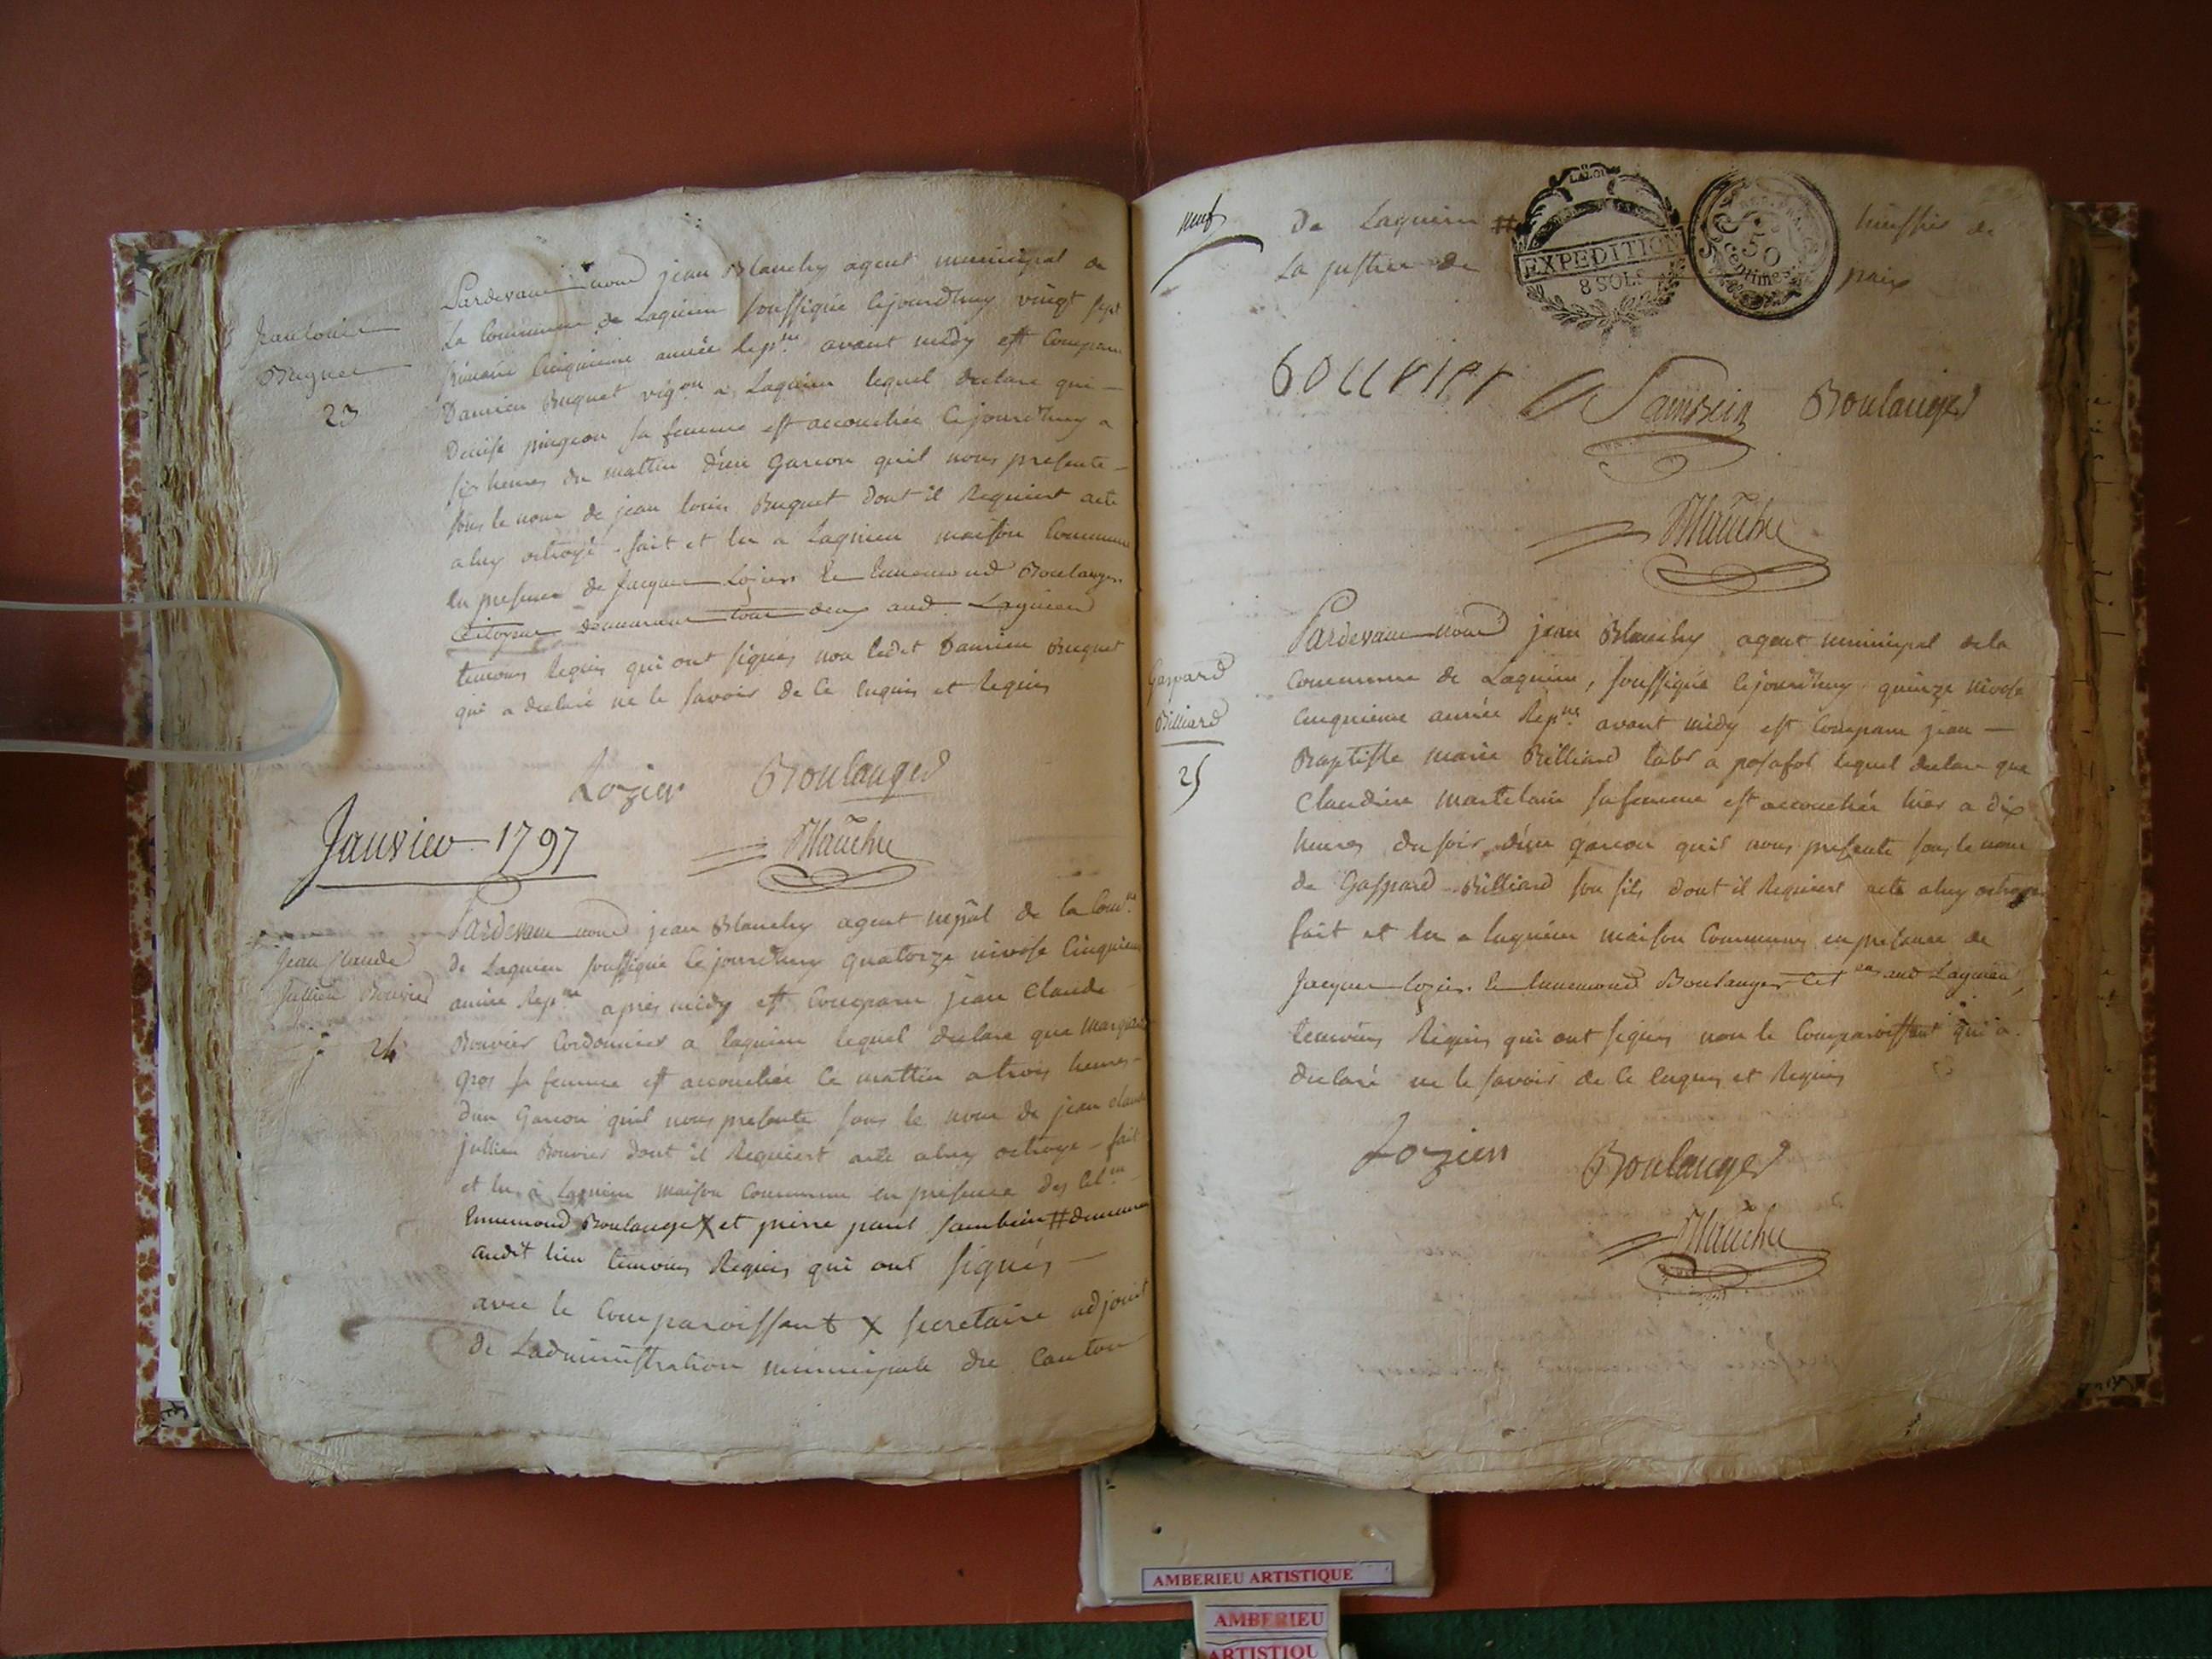 Jean louis
Buguet
23
Pardevant nous jean Blanchy agent municipal de
La Commune de Lagnieu soussigné cejourdhuy vingt sept
frimaire Cinquieme année Rep.ne avant midy est Comparu
Damien Buguet vig.on a Lagnieu lequel declare que
Denise pingeon sa femme est accouchée cejourdhuy a
six heures du mattin d'un Garcon quil nous presente
sous le nom de jean louis Buguet dont il Requiert acte
a luy octroyé. fait et lu a Lagnieu maison Commune
en presence de Jacques Lozier et Ennemond Boulanger
Citoyens demeurant tous deux aud. Lagnieu
temoins Requis qui ont signés non ledit Damien Buguet
qui a declaré ne le savoir de ce enquis et Requis
Lozier Boulanger
Blanchy
Janvier 1797
Jean Claude
Jullien Bouvier
24
Pardevant nous jean Blanchy agent mpal de la Com.ne
de Lagnieu soussigné cejourdhuy quatorze nivose Cinquieme
année Rep.ne apres midy est Comparu jean Claude
Bouvier Cordonnier a lagnieu lequel declare que margueritte
gros sa femme est accouchée ce mattin a trois heures
d'un Garcon quil nous presente sous le nom de jean claude
jullien Bouvier dont il Requiert acte a luy octroyé - fait
et lu a Lagnieu maison Commune en presence des Cit.ns
Ennemond Boulanger X et pierre paul Sambein # demeurant
audit lieu temoins Requis qui ont signés
avec le Comparoissant X secretaire adjoint
de L'administration municipale du Canton
neuf
de Lagnieu # huissier de
La justice de paix
EXPEDITION
8 SOLS
REP. FRA
50
Centimes
bouvier Sambein Boulanger
Blanchy
Gaspard
Billiard
25
Pardevant nous jean Blanchy agent municipal de la
Commune de Lagnieu, soussigné cejourdhuy quinze nivose
Cinquieme année Rep.ne avant midy est Comparu jean
Baptiste marie Billiard lab.r a posafol lequel declare que
Claudine martelain sa femme est accouchée hier a dix
heures du soir d'un garcon quil nous presente sous le nom
de Gaspard Billiard son fils dont il Requiert acte a luy octroyé
fait et lu a lagnieu maison Commune en presence de
Jacques lozier et Ennemond Boulanger Cit.ens aud. Lagnieu,
temoins Requis qui ont signés non le Comparoissant qui a
declaré ne le savoir de ce enquis et Requis
Lozier Boulanger
Blanchy
AMBERIEU ARTISTIQUE
AMBERIEU
ARTISTIQU